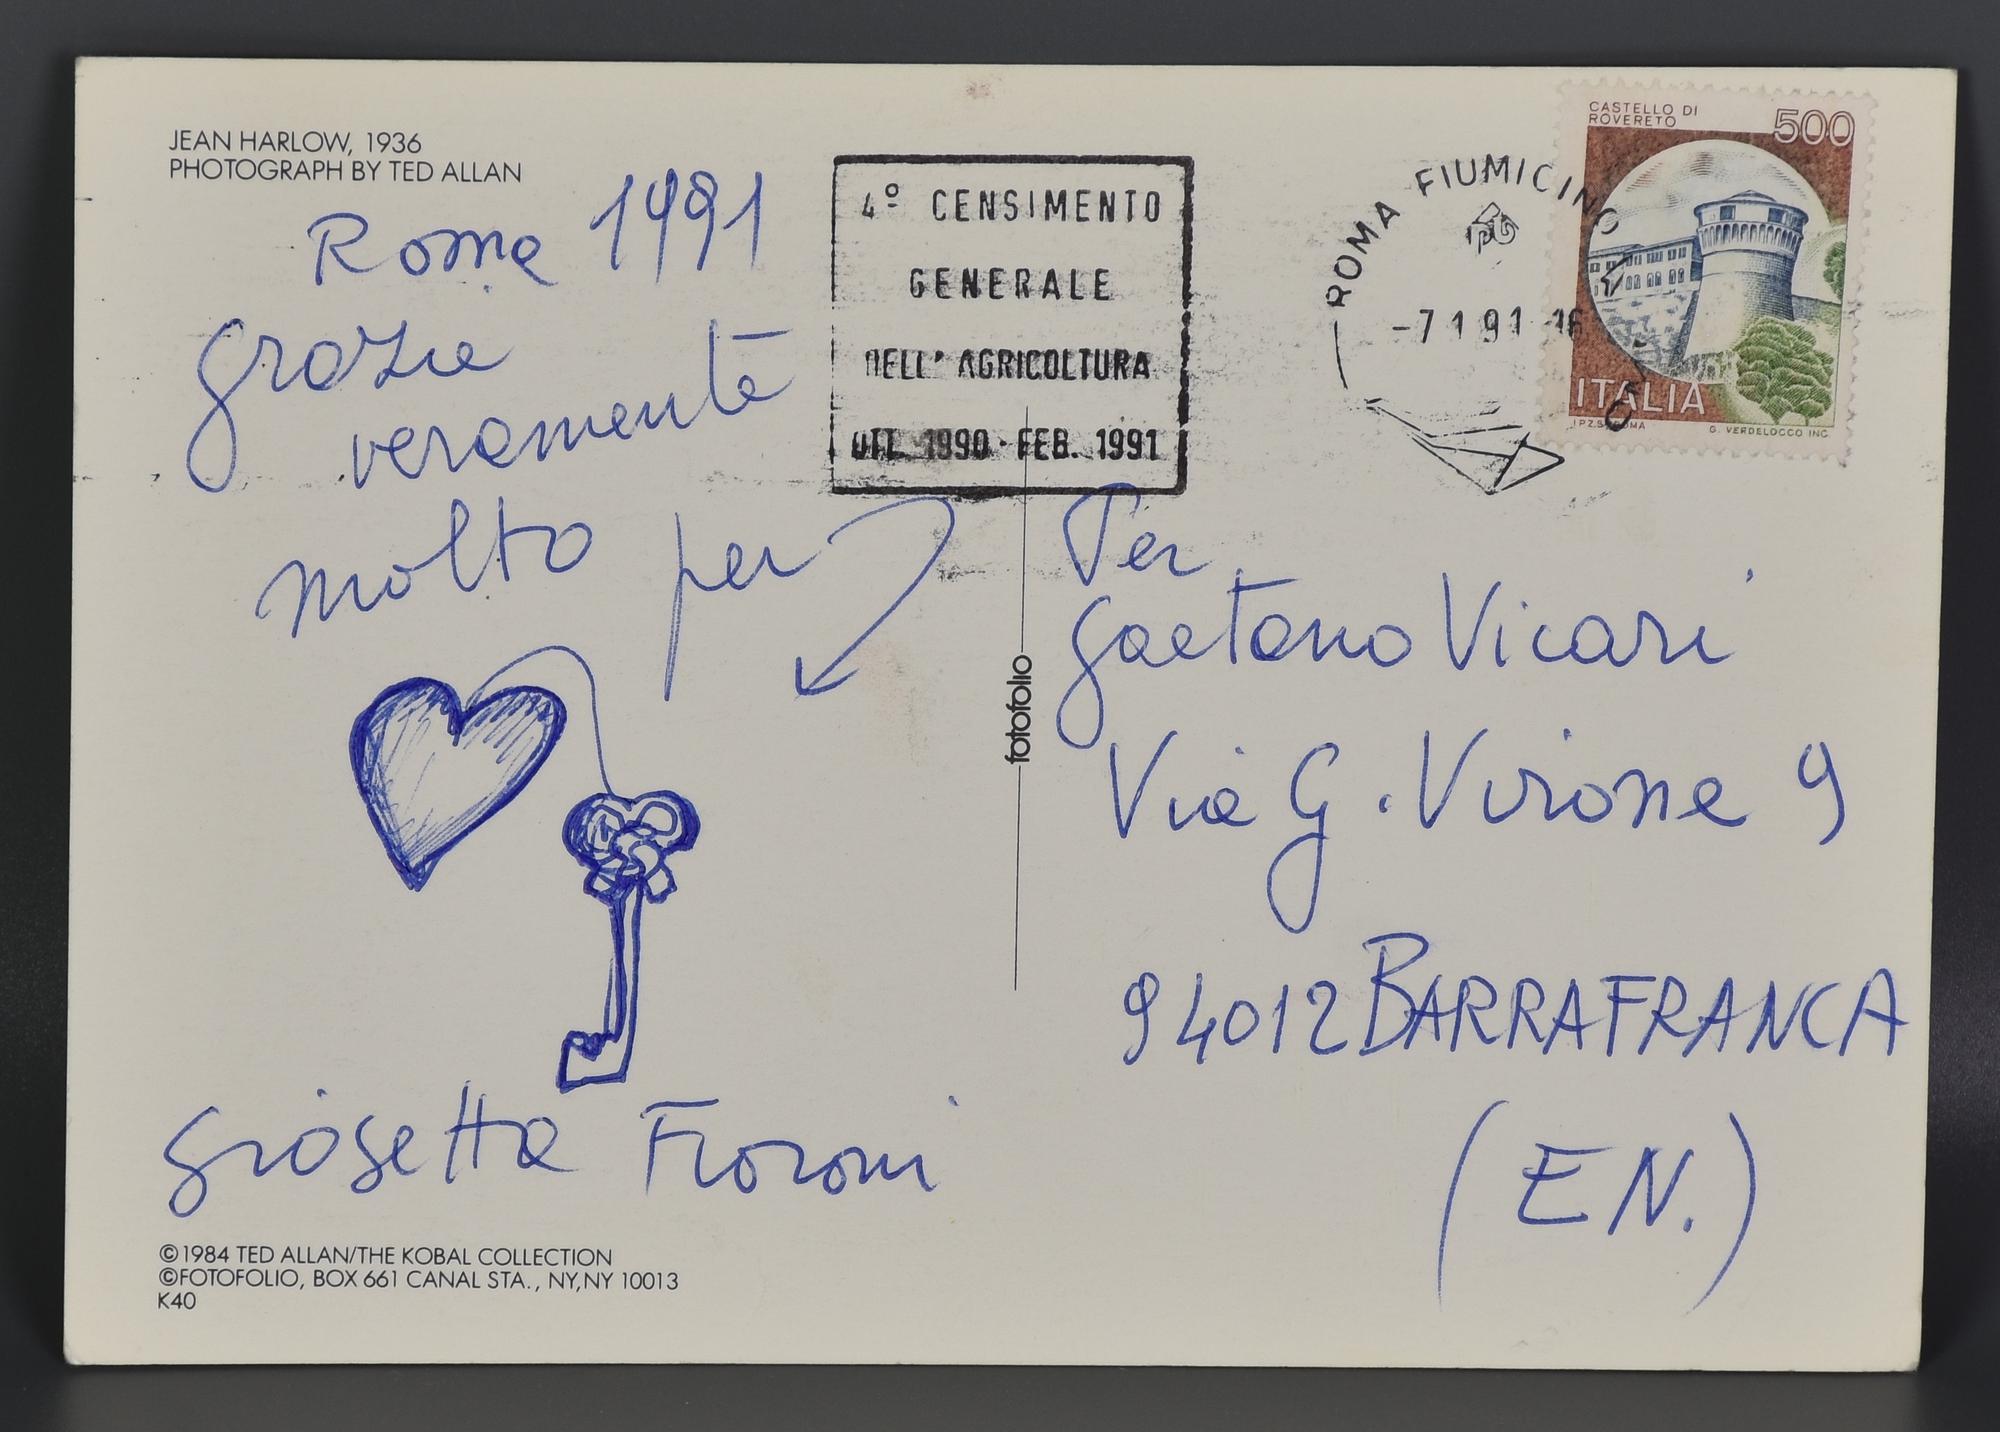 JEAN HARLOW, 1936
PHOTOGRAPH BY TED ALLAN
Roma 1991
grazie
veramente
molto per
giosetta Fioroni
©1984 TED ALLAN/THE KOBAL COLLECTION
©FOTOFOLIO, BOX 661 CANAL STA., NY, NY 10013
K40
4º CENSIMENTO
GENERALE
DELL' AGRICOLTURA
OTT. 1990 - FEB. 1991
fotofolio
ROMA FIUMICINO
-7 1 91 -16
CASTELLO DI
ROVERETO
500
ITALIA
I.P.Z.S. ROMA
G. VERDELOCCO INC.
Per
gaetano Vicari
Via G. Virone 9
94012 BARRAFRANCA
(EN.)